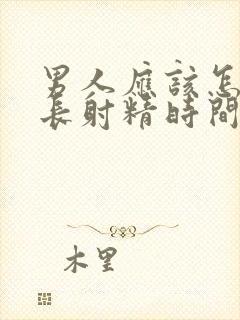 男人應該怎
長射精時間
木里